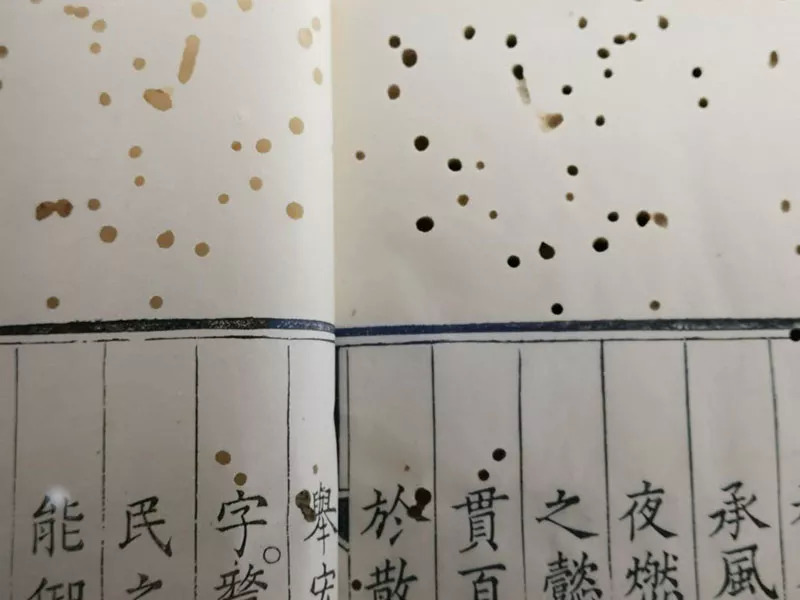 承風
夜燃
之懿
貫百
於散
舉安
字。
民之
能